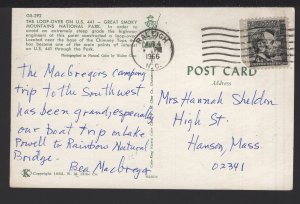 GS-292
THE LOOP-OVER ON U.S. 441 — GREAT SMOKY
MOUNTAINS NATIONAL PARK. In order to
avoid an extremely steep grade the highway
engineers of this point constructed a loop-over.
Located near the base of the Chimney Tops, it
has become one of the main points of interest
on U.S. 441 through the Park.
Photographed in Natural Color by Walter
RALEIGH
1966
N.C.
POST CARD
Address
The Macbregors camping
trip to the Southwest
has been grand, especially
our boat trip on Lake
Powell to Rainbow Natural
Bridge.
Bea Macbregor
Mrs. Hannah Sheldon
High St.
Hanson, Mass.
02341
K